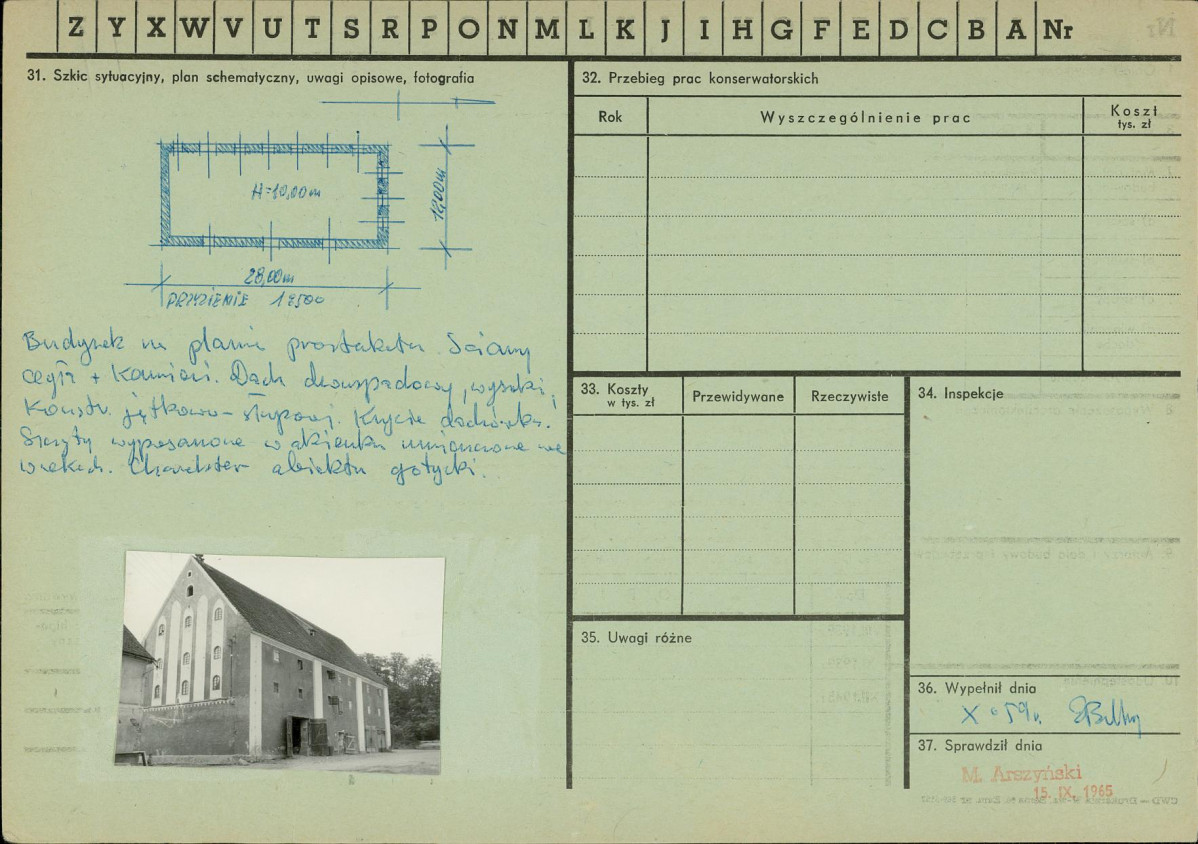 Z Y X W V U T S R P O N M L K J I H G F E D C B A Nr
31. Szkic sytuacyjny, plan schematyczny, uwagi opisowe, fotografia
H=10,00m
12,00m
28,00m
PRZYZIEMIE 1:500
Budynek na planie prostokąta. Ściany
cegła + kamień. Dach dwuspadowy, wysoki,
konstr. jętkowo-stolcowej. Krycie dachówka.
Szczyty wyposażone w okienka umieszczone we
wnękach. Charakter obiektu gotycki.
32. Przebieg prac konserwatorskich
Rok
Wyszczególnienie prac
Koszt
tys. zł
33. Koszty
w tys. zł
Przewidywane
Rzeczywiste
34. Inspekcje
35. Uwagi różne
36. Wypełnił dnia
X 59r.
37. Sprawdził dnia
M. Arszyński
15. IX. 1965